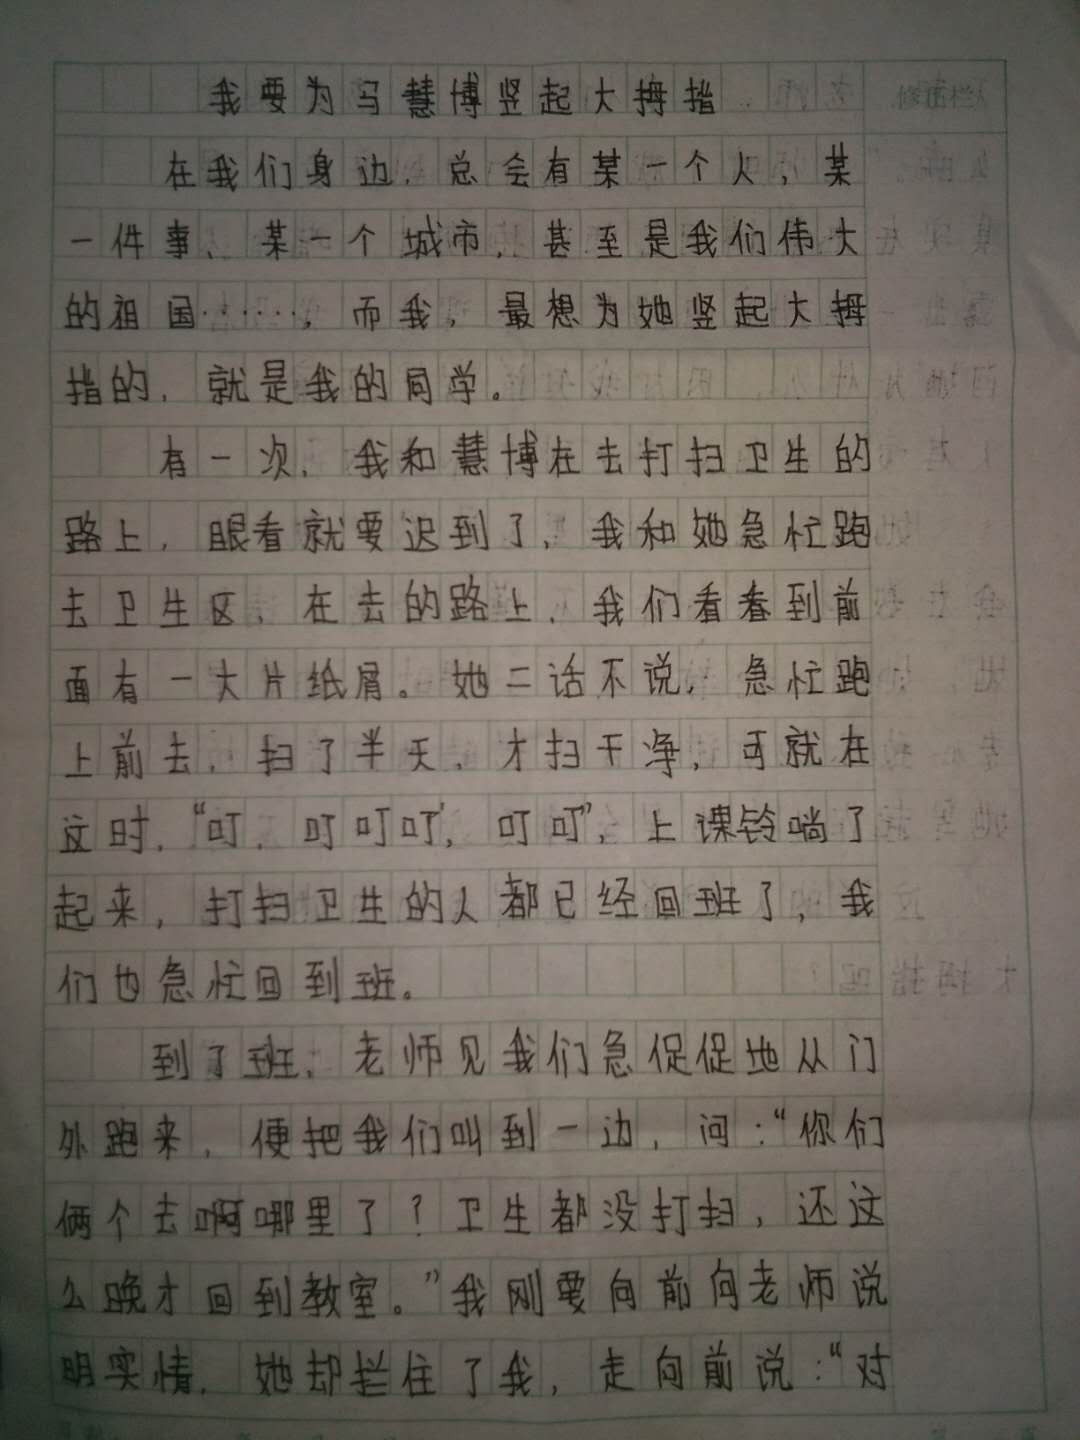 我要为马慧博竖起大拇指
在我们身边，总会有某一个人，某
一件事、某一个城市，甚至是我们伟大
的祖国……，而我，最想为她竖起大拇
指的，就是我的同学。
有一次，我和慧博在去打扫卫生的
路上，眼看就要迟到了，我和她急忙跑
去卫生区，在去的路上，我们看看到前
面有一大片纸屑。她二话不说，急忙跑
上前去，扫了半天，才扫干净，可就在
这时，“叮，叮叮叮，叮叮”，上课铃响了
起来，打扫卫生的人都已经回班了，我
们也急忙回到班。
到了班，老师见我们急促促地从门
外跑来，便把我们叫到一边，问：“你们
俩个去啊哪里了？卫生都没打扫，还这
么晚才回到教室。”我刚要向前向老师说
明实情，她却拦住了我，走向前说：“对